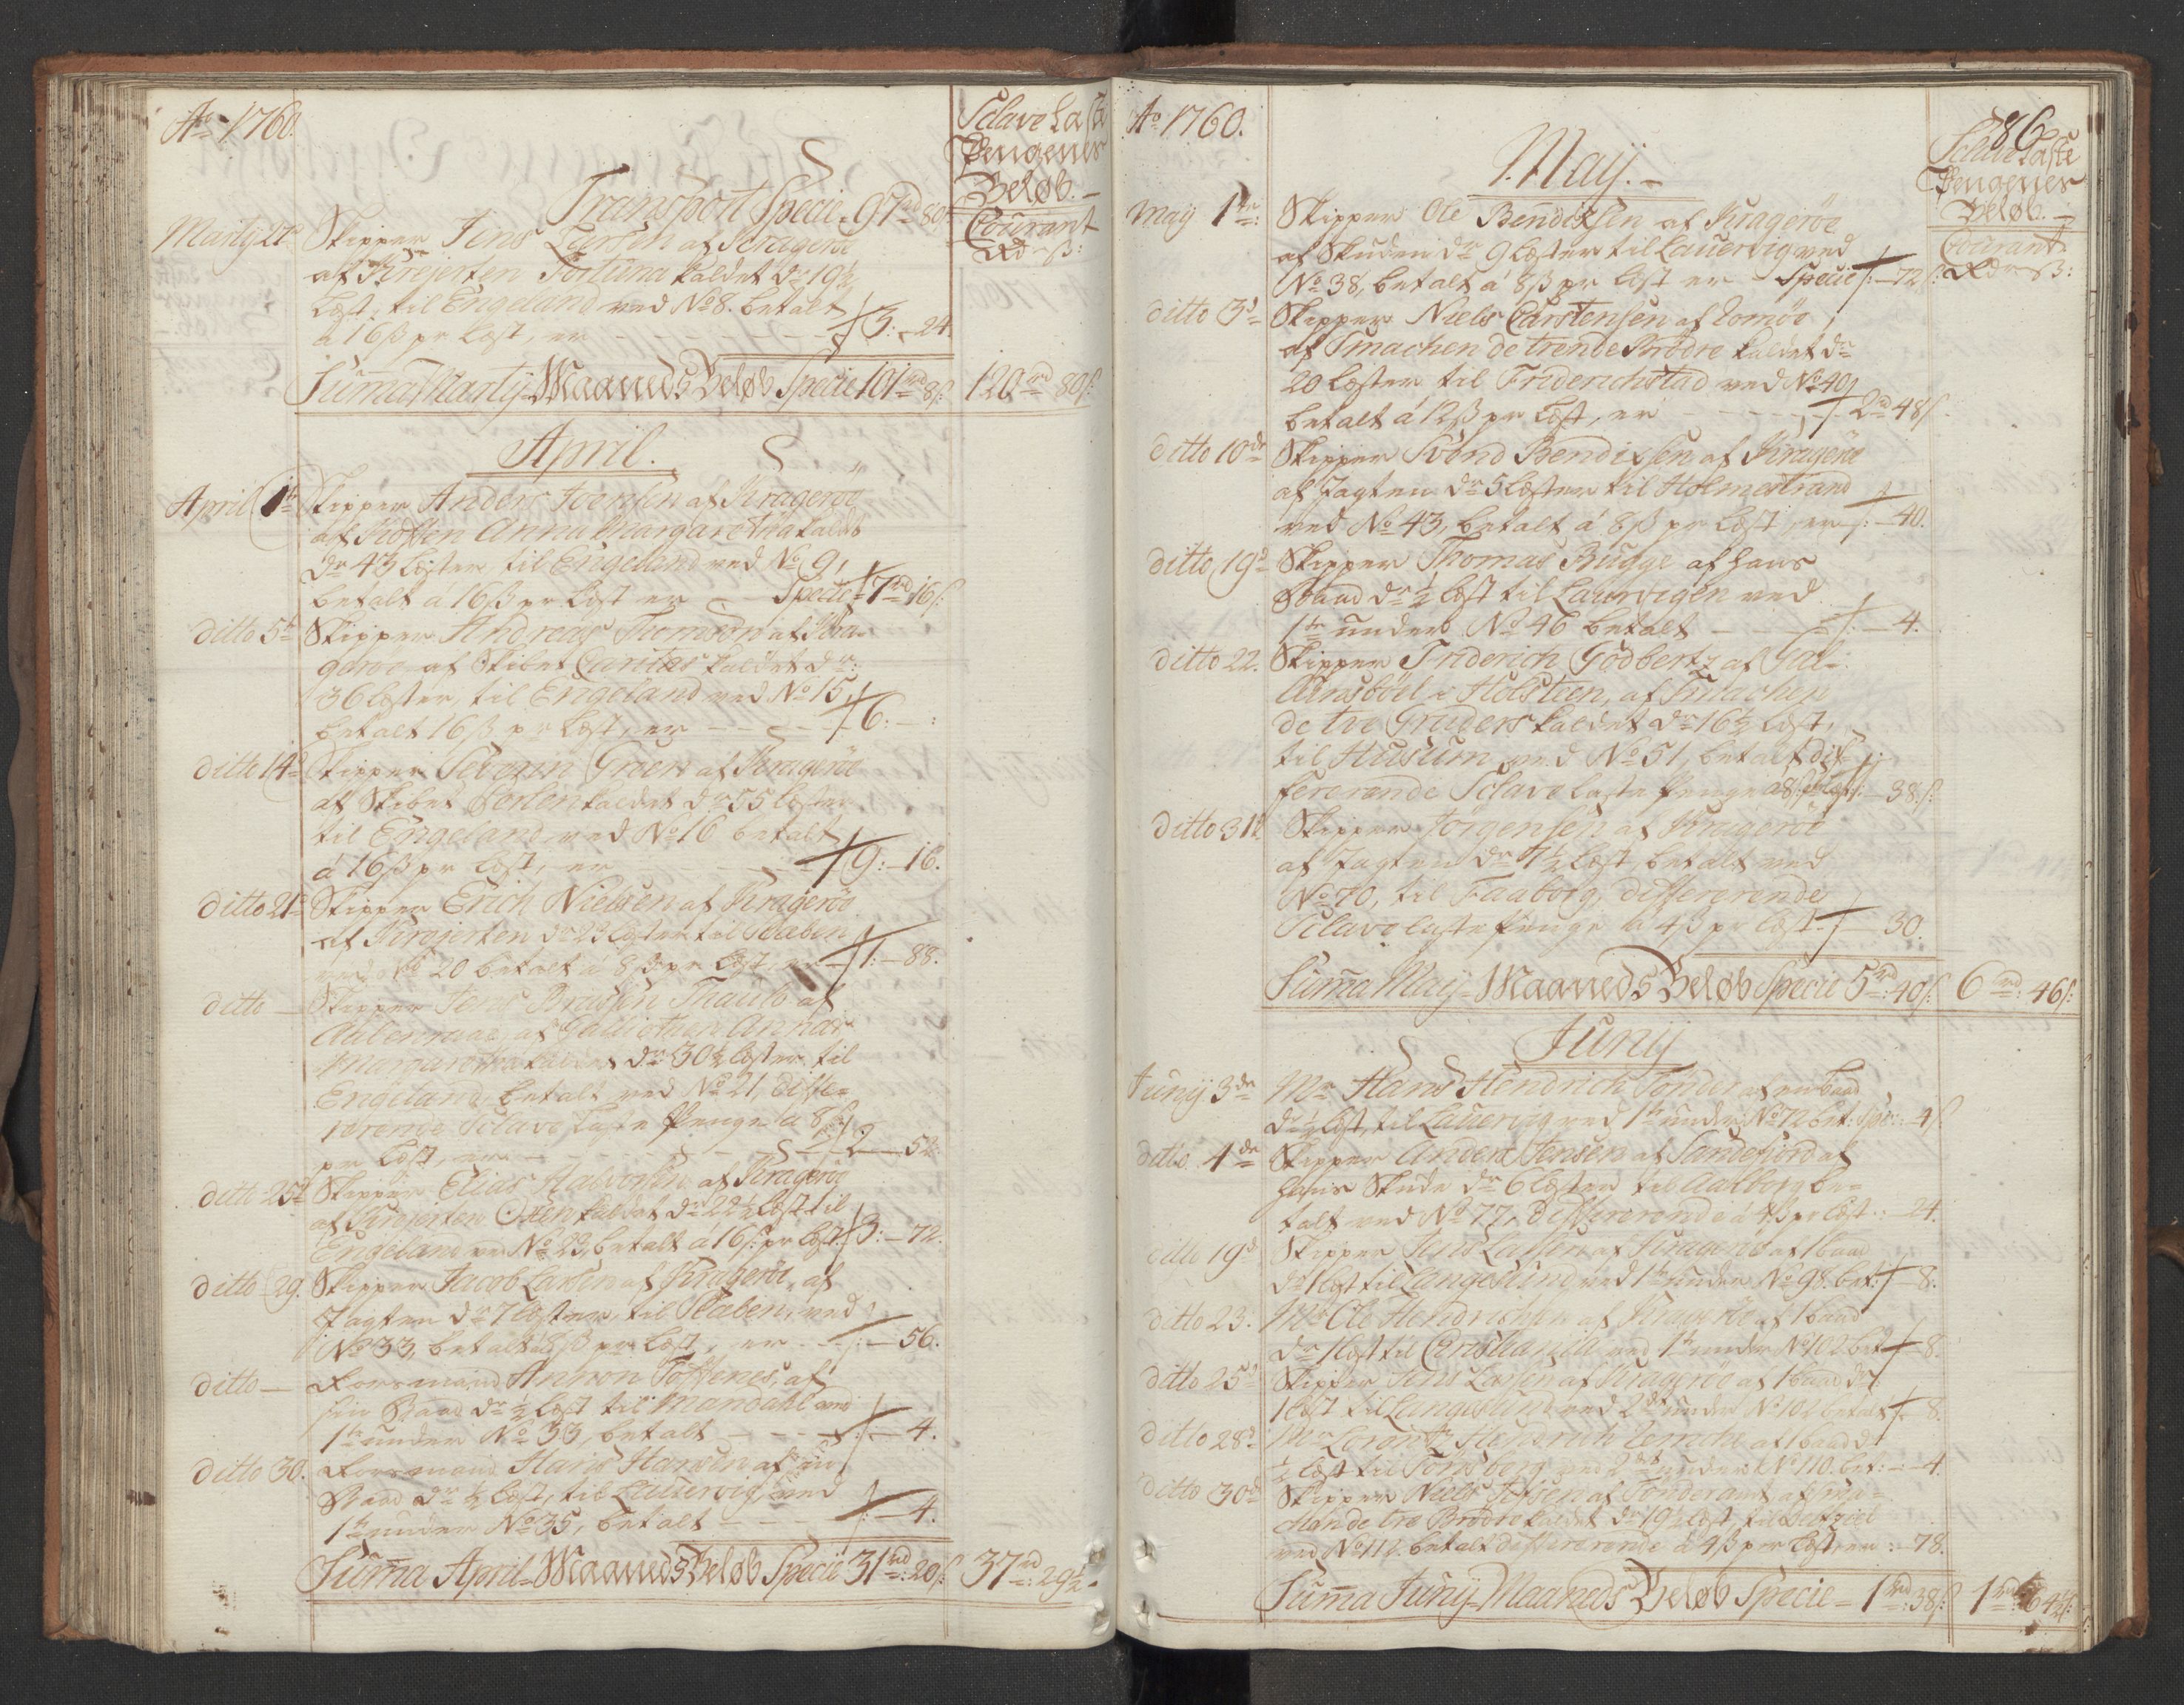 Ao 1760.
Sclave Laste
Pengenes
Beløb. -
Courant
Rd ß:
Transport Specie 97rd 80ß
Martij 27de Skipper Jens Larsen af Kragerøe
af Krejerten Fortuna kaldet dr 19½
Læst, til Engeland ved No 8. betalt
á 16ß pr Læst, er - - - 3: - 24.
Suma Martij Maaneds Beløb Specie 101rd 8ß: 120rd 80ß:
April.
April 1te Skipper Anders Joensen af Kragerøe
af Koffen Anna Margaretha kaldet
dr 43 Læster, til Engeland ved No 9,
betalt á 16ß pr Læst er - Specie 7rd 16ß:
ditto 5te Skipper Andreas Tomesen af Kra-
gerøe, af Skibet Caritas kaldet dr:
36 Læster, til Engeland ved No 15,
betalt 16ß pr Læst, er - - - 6: - :
ditto 14de Skipper Severin Green af Kragerøe
af Skibet Perlen kaldet dr 55 Læster
til Engeland ved No 16 betalt
á 16ß pr Læst, er - - - 9: - 16.
ditto 21de Skipper Erich Nielsen af Kragerøe
af Krejerten dr 23 Læster til Staben
ved No 20 betalt á 8ß pr Læst, er - 1: - 88.
ditto - Skipper Jens Thaulo af
Aabenraae, af Galliothen Anna
Margaretha kaldet dr 30½ Læster til
Engeland, betalt ved No 21, diffe-
rerende Sclave Laste Penge á 8ß
pr Læst, er - - - 2 - 52.
ditto 25de Skipper Elias Halvorsen af Kragerøe
af Krejerten Oxen kaldet dr 22½ Læst til
Engeland ved No 23, betalt á 16ß: pr Læst 3: - 72.
ditto 29. Skipper Jacob Larsen af Kragerøe, af
Jagten dr 7 Læster, til Staben, ved
No 33, betalt á 8ß pr Læst, er - : - 56.
ditto - Formand Annon af
sin Baad dr ½ Læst til Mandahl ved
1te under No 33, betalt - - - 4.
ditto 30. Formand Hans Hansen af sin
Baad dr ½ Læst, til Lauervig, ved
1te under No 35, betalt - - - 4.
Suma April Maaneds Beløb Specie 31rd: 20ß: 37rd: 29½ -
Ao 1760.
86
Sclave Laste
Pengenes
Beløb. -
Courant
Rdr ß:
Maij. -
Maij 1te Skipper Ole Bendixsen af Kragerøe
af Skuden dr 9 Læster til Lauervig ved
No 38, betalt á 8ß pr Læst er - Specie : - 72ß:
ditto 3de Skipper Niels Carstensen af Romøe
af Smachen de trende Brødre kaldet dr
20 Læster til Friderichstad ved No 40,
betalt á 12ß pr Læst, er - - - 2rd 48ß
ditto 10de Skipper Svend Bendixsen af Kragerøe
af Jagten dr 5 Læster til Holmestrand
ved No 43, betalt á 8ß pr Læst, er : - 40.
ditto 19de Skipper Thomas Bugge af hans
Baad dr ½ Læst til Laurvigen ved
1te under No 46 betalt - - - 4.
ditto 22. Skipper Friderich Godbertz af Gal-
i Holsteen, af Smachen
de tre kaldet dr 16½ Læst,
til Husum ved No 51, betalt dif-
fererende Sclave Laste Penge - 38ß:
ditto 31te Skipper Jørgensen af Kragerøe
af Jagten dr 7½ Læst, betalt ved
No 70, til Faaborg, differerende
Sclave Laste Penge á 4ß pr Læst - 30.
Suma Maij Maaneds Beløb Specie 5rd: 40ß: 6rd: 46ß:
Junij
Junij 3de Mr Hans Hendrich Tønder af en baad
dr ½ Læst, til Lauervig ved 1te under No 72 bet: Spe: - 4ß
ditto 4de Skipper Anders Jensen af Sandefiord af
hans Skude dr 6 Læster til Aalborg be-
talt ved No 77, differerende á 4ß pr Læst : - 24.
ditto 19de Skipper Jens Lassen af Kragerøe af 1 baad
dr 1 Læst til Langesund ved 1te under No 98. bet: - 8:
ditto 23. Mr Ole Hendrichsen af Kragerøe af 1 baad
dr 1 Læst til Christiania ved 1te under No 102 bet - 8.
ditto 25de Skipper Jens Lassen af Kragerøe af 1 baad dr
1 Læst til Langesund ved 2de under No 102 betalt - 8.
ditto 28de Mr Lorentz Hendrich af 1 baad dr
½ Læst til Tønsberg ved 2de under No 110. bet: - 4.
ditto 30de Skipper Niels af Tønder amt af Sma-
chen de tre Brødre kaldet dr 19½ Læst, til
ved No 112. betalt differerende á 4ß pr Læst, er : - 78.
Suma Junij Maaneds Beløb Specie - 1rd: 38ß: 1rd: